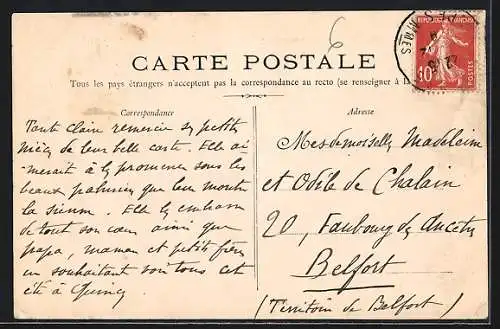 CARTE POSTALE
Tous les pays étrangers n'acceptent pas la correspondance au recto (se renseigner à
Correspondance
Adresse
Tante Claire remercie ses petites
nièces de leur belle carte. Elle ai-
merait à se promener sous les
beaux palmiers que leur montre
la sienne. Elle les embrasse
de tout son cœur ainsi que
papa, maman et petit frère
en souhaitant voir tous cet
été à Quincy
Mesdemoiselles Madeleine
et Odile de Chalain
20, Faubourg des Ancêtres
Belfort
(Territoire de Belfort)
REPUBLIQUE FRANÇAISE
10
POSTES
6